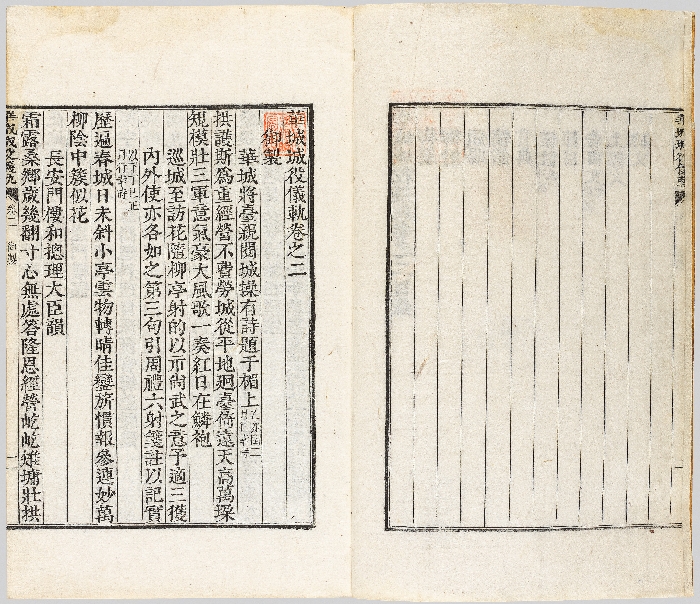 華城城役儀軌卷之二
御製
華城將臺親閱城操有詩題于楣上
拱護斯爲重經營不費勞城從平地逈臺倚遠天高萬垛
規模壯三軍意氣豪大風歌一奏紅日在鱗袍
巡城至訪花隨柳亭射的以示尙武之意予適三獲
內外使亦各如之第三句引周禮六射箋註以記實
歷遍春城日未斜小亭雲物轉晴佳鑾旂慣報參連妙萬
柳陰中簇似花
長安門樓和摠理大臣韻
霜露桑鄕歲幾翻寸心無處答隆恩經營屹屹雉墉壯拱
卷二
御製